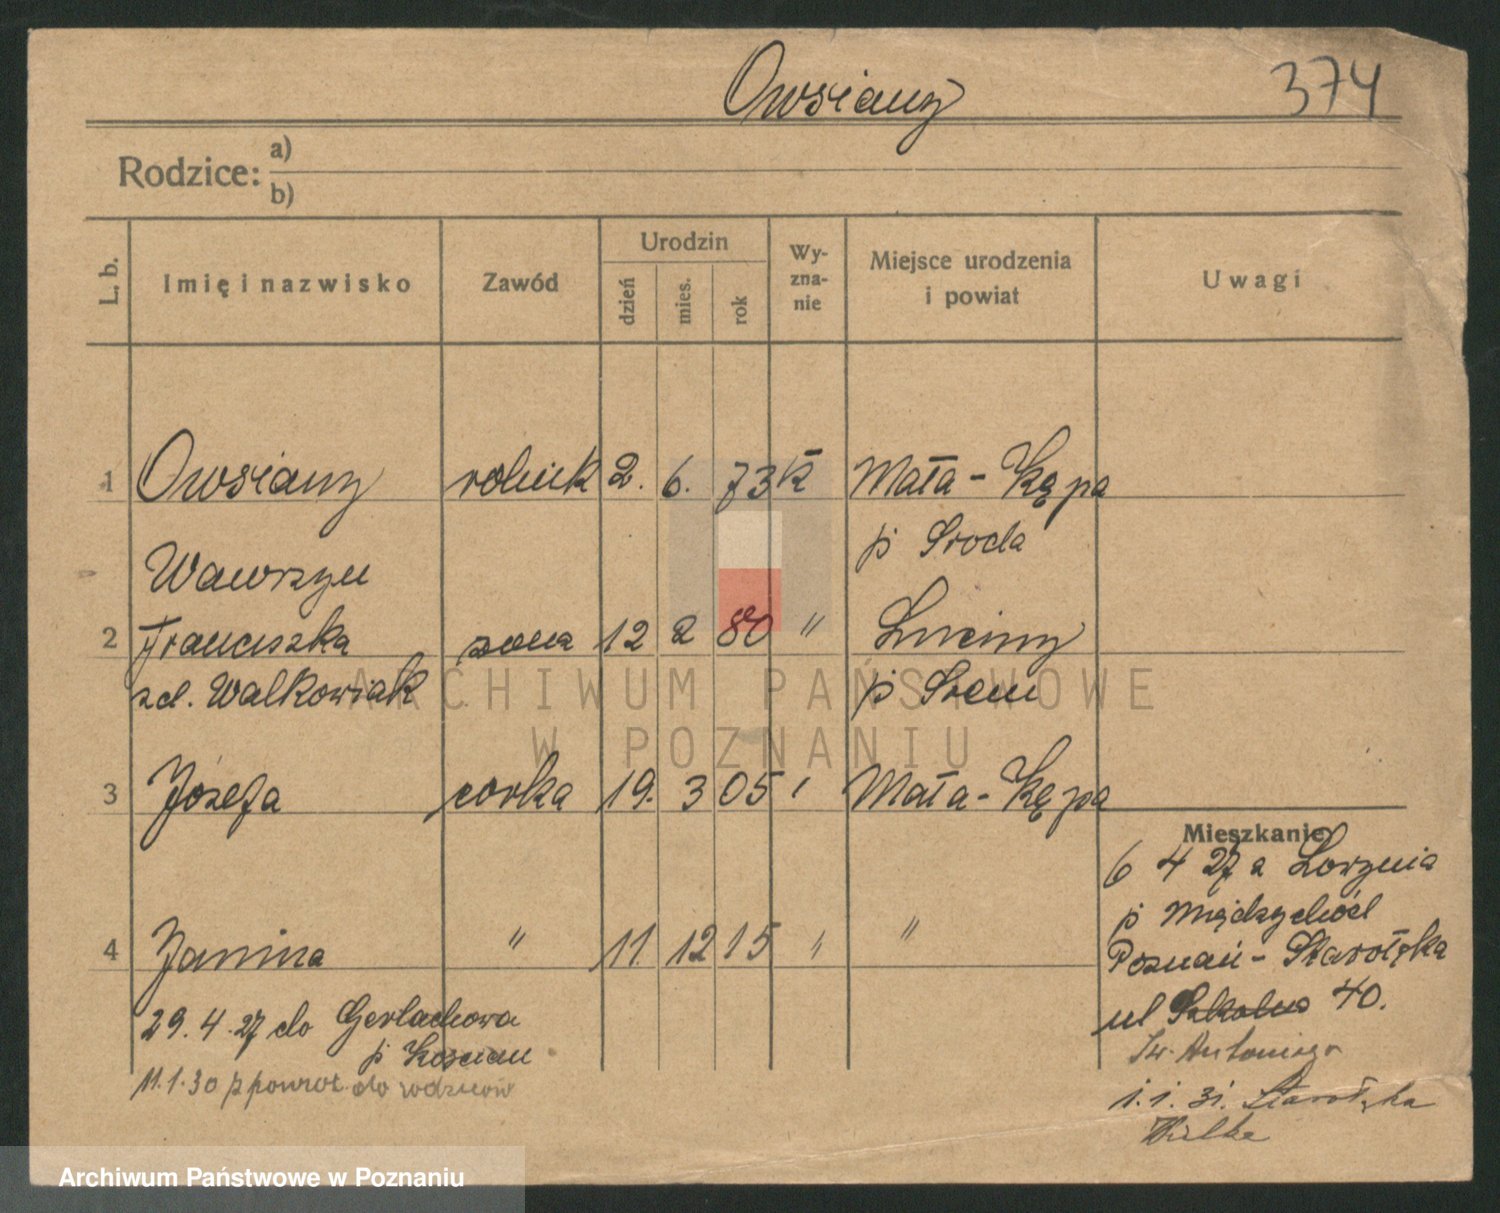 Owsiany 374
Rodzice: a)
b)
L. b. Imię i nazwisko Zawód Urodzin dzień mies. rok Wy-zna-nie Miejsce urodzenia i powiat Uwagi
1 Owsiany rolnik 2. 6. 73 k Mała-Kępa
p Sroda
Wawrzyn
2 Franciszka zona 12 2 80 " Luciny
zd. Walkowiak p Srem
ARCHIWUM PAŃSTWOWE
W POZNANIU
3 Józefa corka 19. 3 05 " Mała-Kępa
Mieszkanie
6 4 27 z
p Międzychód
4 Janina " 11. 12 15 " "
Poznań-Starołęka
ul Szkolna 40.
Sw. Antoniego
1.1.31. Starołęka
29.4.27 do Gerlachowa
p Koscian
11.1.30 z powrot do rodziców
Archiwum Państwowe w Poznaniu